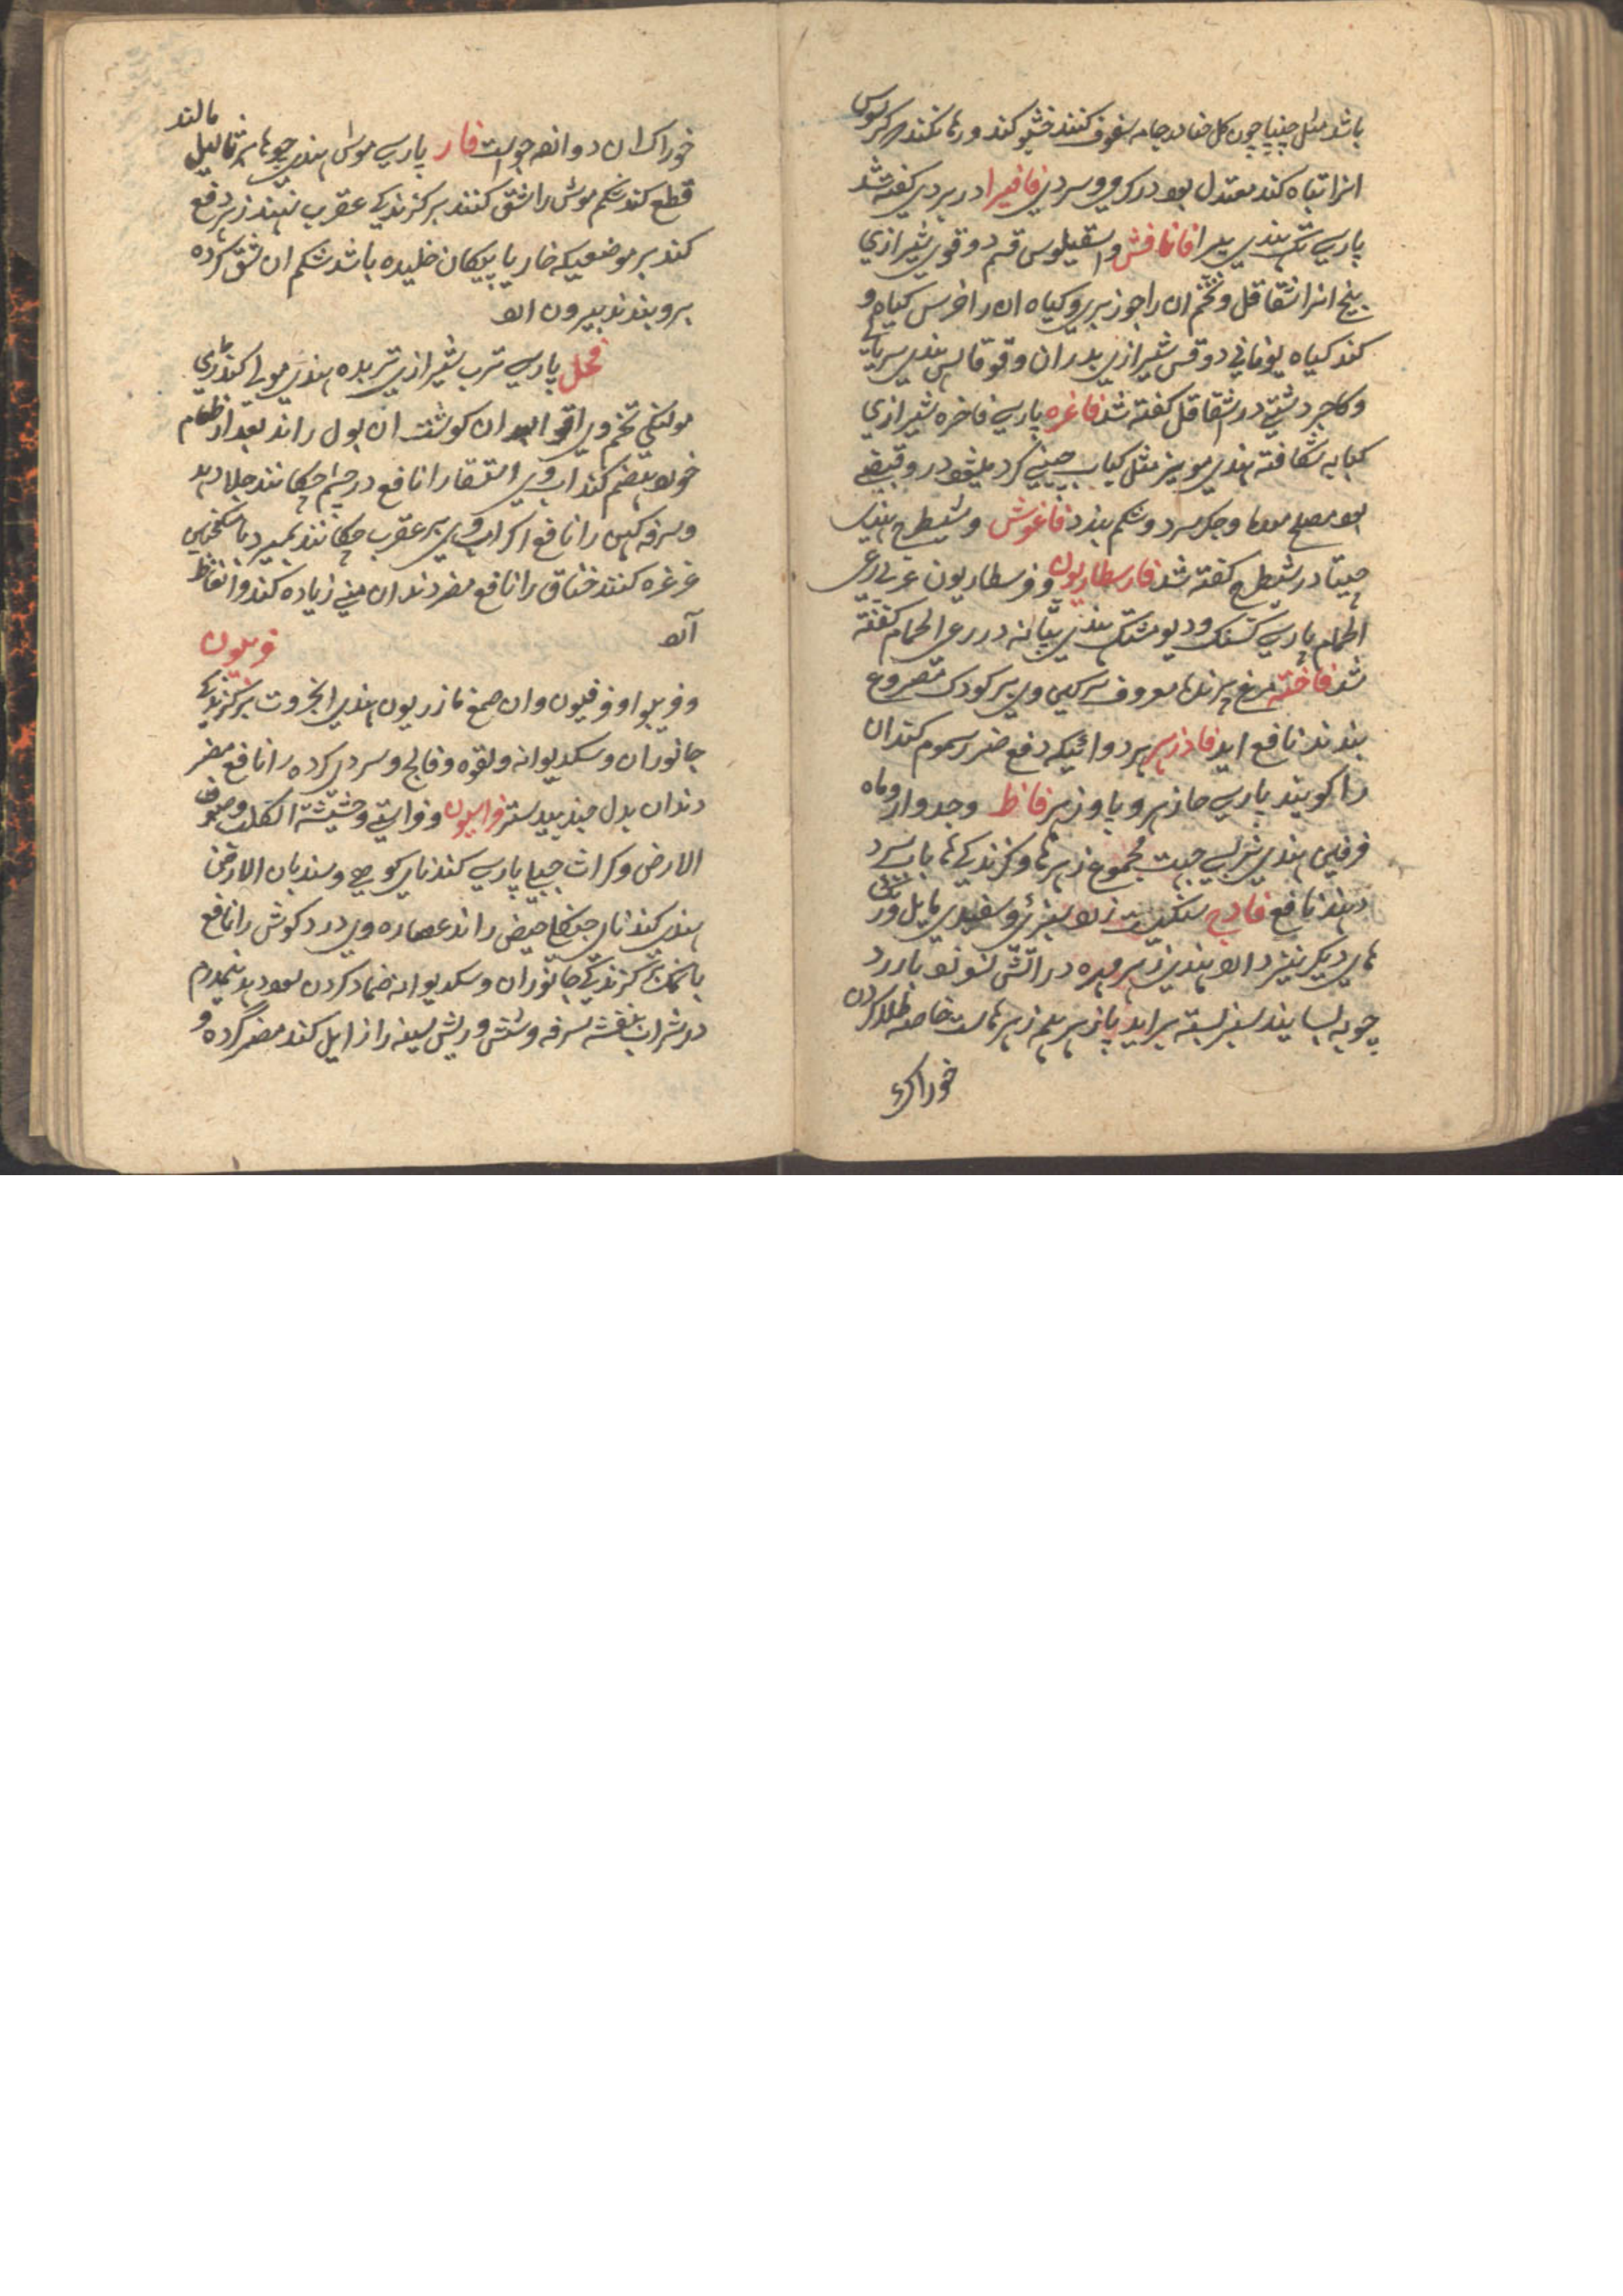 باشد مثل چنپا چون کل حنا در جامه سفوف کنند خشبو کند و رها نکند که کرلوس
انرا تباه کند معتدل بود در کرمی و سردی فافیرا در بردی کفته شد
پارسی تک هندی پیرا فانافش و اسقیلوس قسم دوقوی شیرازی
بیخ انرا شقاقل و تخم ان را جوزبری و کیاه ان را اخرس کیاهی و
کند کیاه یونانی دوقس شیرازی بدران و قوقالس هندی سریانی
و کاجر دشتی در شقاقل کفته شد فاغره پارسی فاخره شیرازی
کبابه شکافته هندی مویز مثل کباب چینی کرد میشود در وقبضی
بود مصلح معده و جکر سرد و شکم بندد فاغوش و شیطرج هندی
چیتا در شیطرج کفته شد فارسطاریون و فرسطاریون عربی رعی
الحمام پارسی کسنک و دیو مشنک هندی بتانه در رعی الحمام کفته
شد فاخته مرغ پرنده معروف سرکین وی بر کودک مصروع
بندند نافع اید فادزهر هر دوائیکه دفع ضرر سموم کند ان
را کویند پارسی حازهر و پاوزهر فاظ و جدوار و ماه
فرفین هندی نربسی جهت مجموع زهرها و کزندکی ها باب سرد
دهند نافع فادج سنکیست زرد بسبزی و سفیدی مایل و رنک
های دیکر نیز دارد هندی زهر مهره در اتش نسوزد با زرد
چوبه بسایند سبز بسته براید پازهر همه زهرهاست خاصه طلا کردن
خوراک
خوراک ان دوانزده جواست فار پارسی موش هندی چوها بر ثالیل مالند
قطع کند شکم موش را شق کنند بر کزندکی عقرب نهند زهر دفع
کند بر موضعیکه خار یا پیکان خلیده باشد شکم ان شق کرده
برو بندند بیرون ارد
فجل پارسی ترب شیرازی تربده هندی مولی کنددری
مولنکی تخم وی اقوا بود ان کوشت ان بول راند بعد از طعام
خورد هضم کند اب وی استسقا را نافع در چشم چکانند جلا دهد
و سرفه کهن را نافع اکر اب وی بر عقرب چکانند بمیرد با سکنجبین
غرغره کنند خناق را نافع مضر دندان منی زیاده کند و انعاظ
آرد فربیون
و فربیو او فرفیون و ان صمغ مازریون هندی انجروت بر کزندکی
جانوران و سک دیوانه و لقوه و فالج و سردی کرده را نافع مضر
دندان بدل جند بیدستر فراسیون و فراسی و حشیشة الکلب و صوف
الارض و کراث جبلی پارسی کندنای کوهی و سندبان الارض
هندی کندنای جنکلی حیض راند عصاره وی درد کوش را نافع
با نمک بر کزندکی جانوران و سک دیوانه ضماد کردن سود دهد نیمدرم
در شراب بنفشه سرفه و شش و ریش سینه را زایل کند مضر کرده و